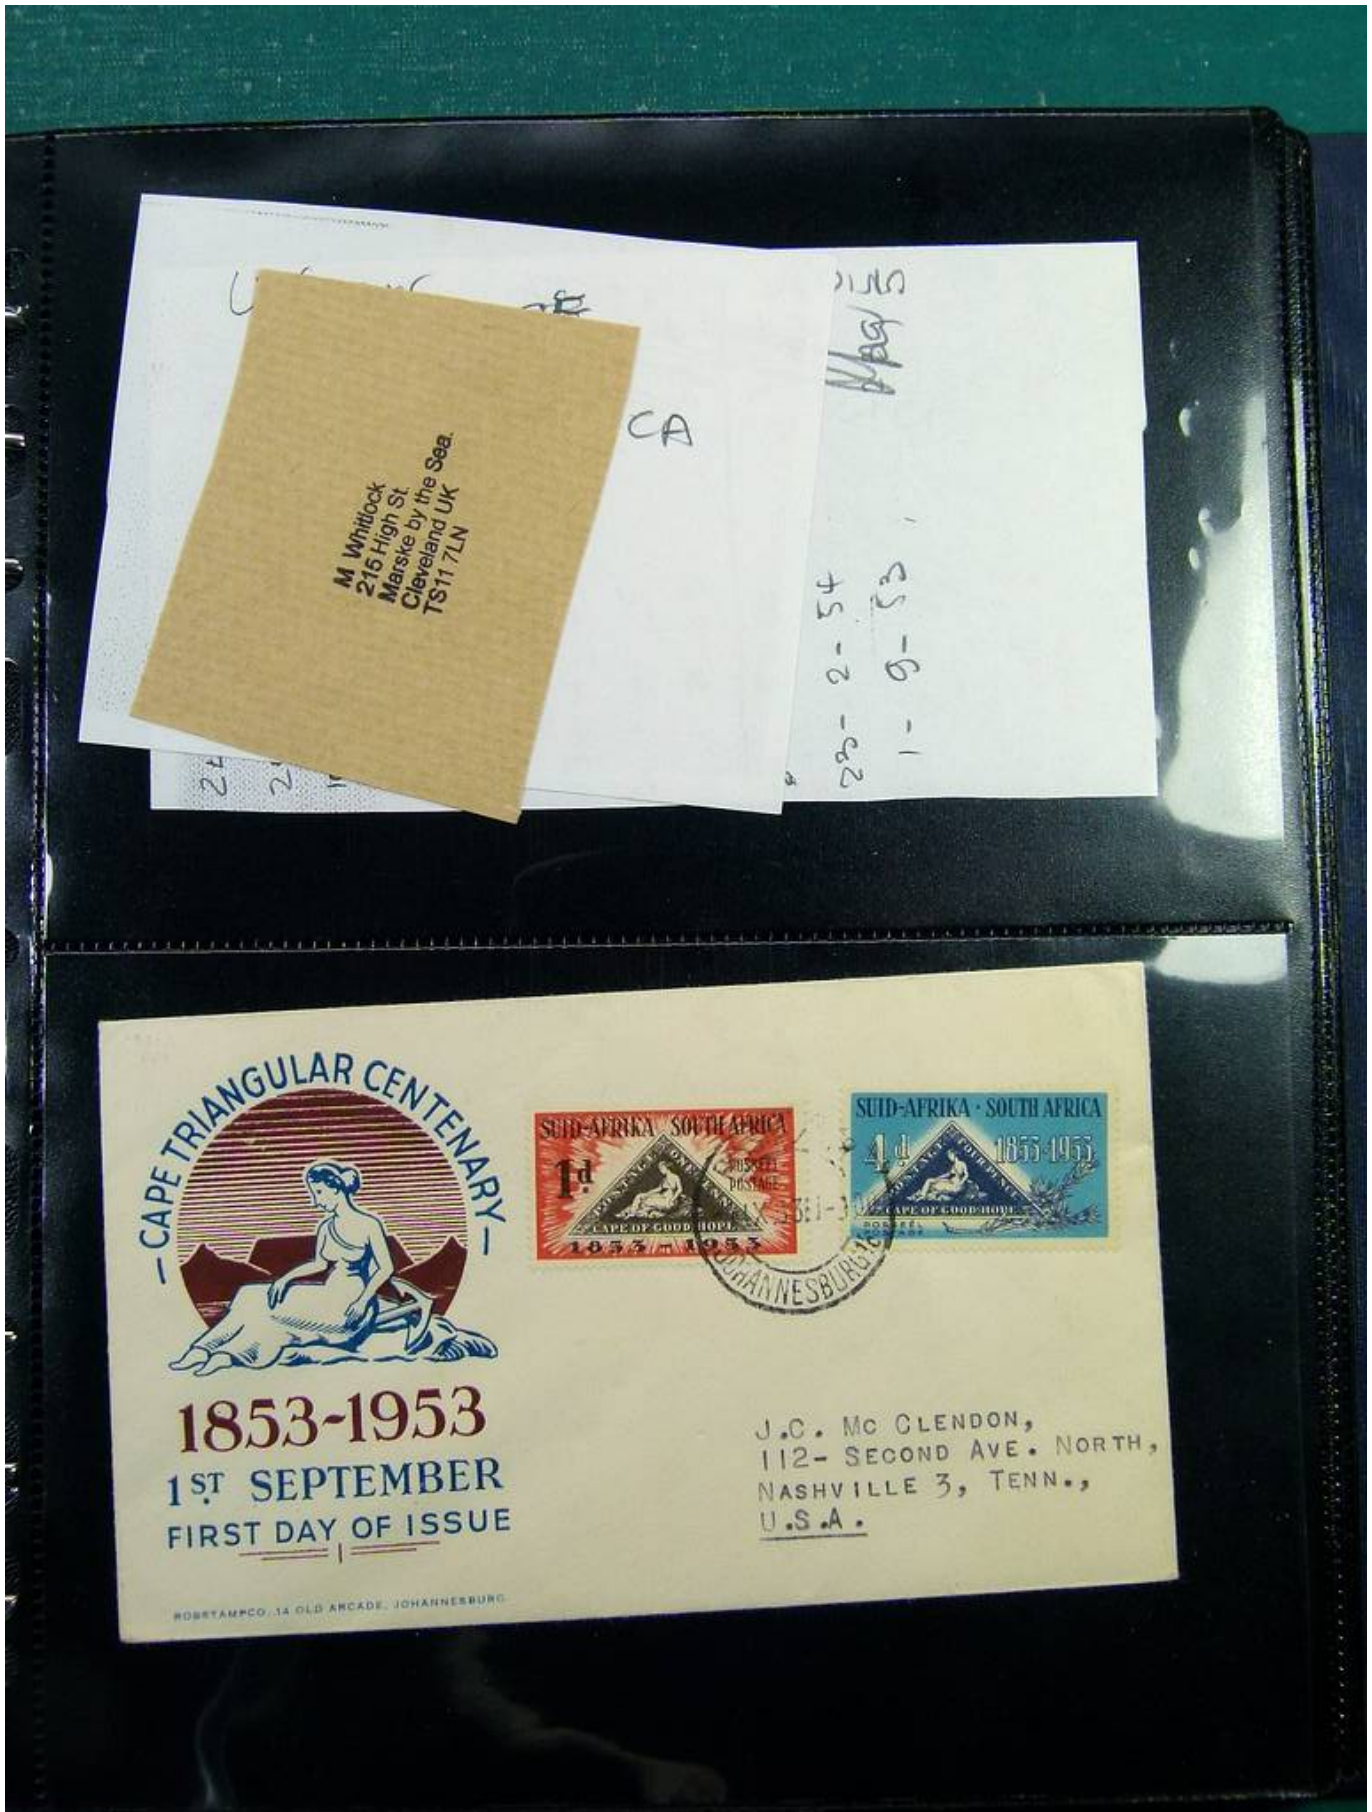 CA
M Whitlock
215 High St.
Marske by the Sea.
Cleveland UK
TS11 7LN
23-2-54
1-9-53
CAPE TRIANGULAR CENTENARY
1853-1953
1ST SEPTEMBER
FIRST DAY OF ISSUE
ROBSTAMPCO. 14 OLD ARCADE, JOHANNESBURG
SUID-AFRIKA SOUTH AFRICA
1d
POSTAGE
POSTAGE ONE PENNY
CAPE OF GOOD HOPE
1853-1953
SUID-AFRIKA · SOUTH AFRICA
4d
1853-1953
POSTAGE FOUR PENCE
CAPE OF GOOD HOPE
POSSEEL
POSTAGE
JOHANNESBURG
J.C. MC CLENDON,
112- SECOND AVE. NORTH,
NASHVILLE 3, TENN.,
U.S.A.